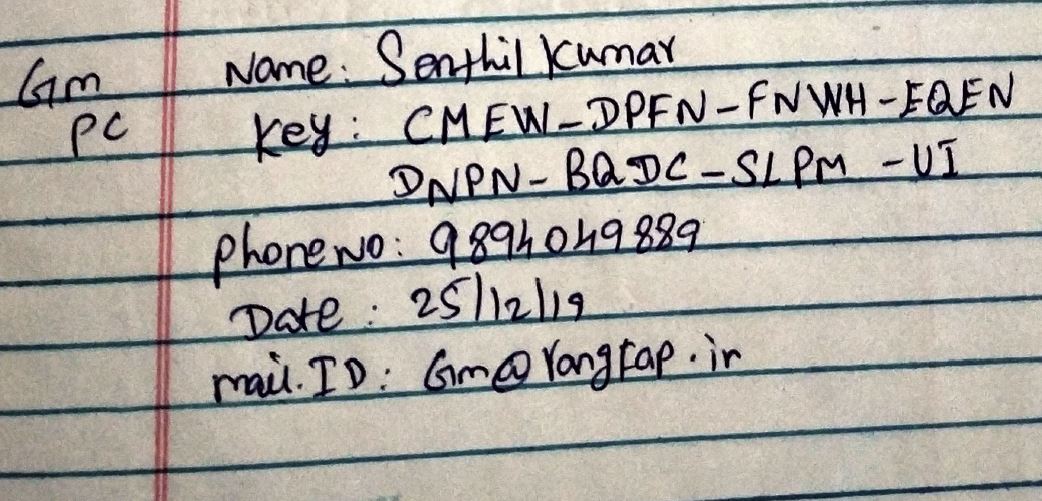 Gm Name: Senthil Kumar
PC Key: CMEW-DPFN-FNWH-EQEN
DNPN-BQDC-SLPM-UI
phone no: 9894049889
Date: 25/12/19
mail.ID: Gm@rangtap.in